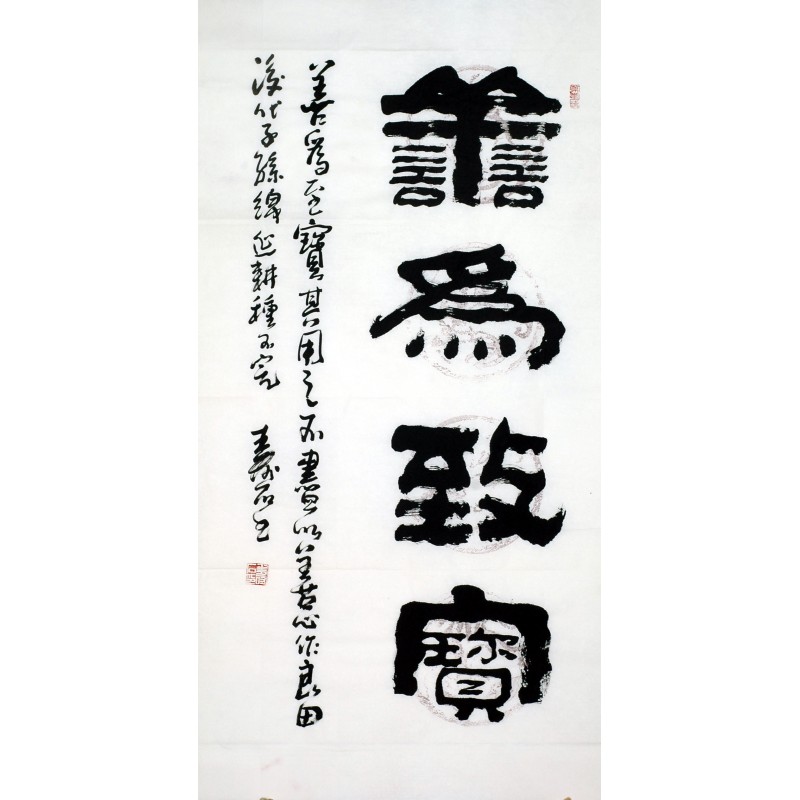 譱為致寶
善為至寶其用之不盡以善心作良田
後代子孫綿延耕種不完
壽石書